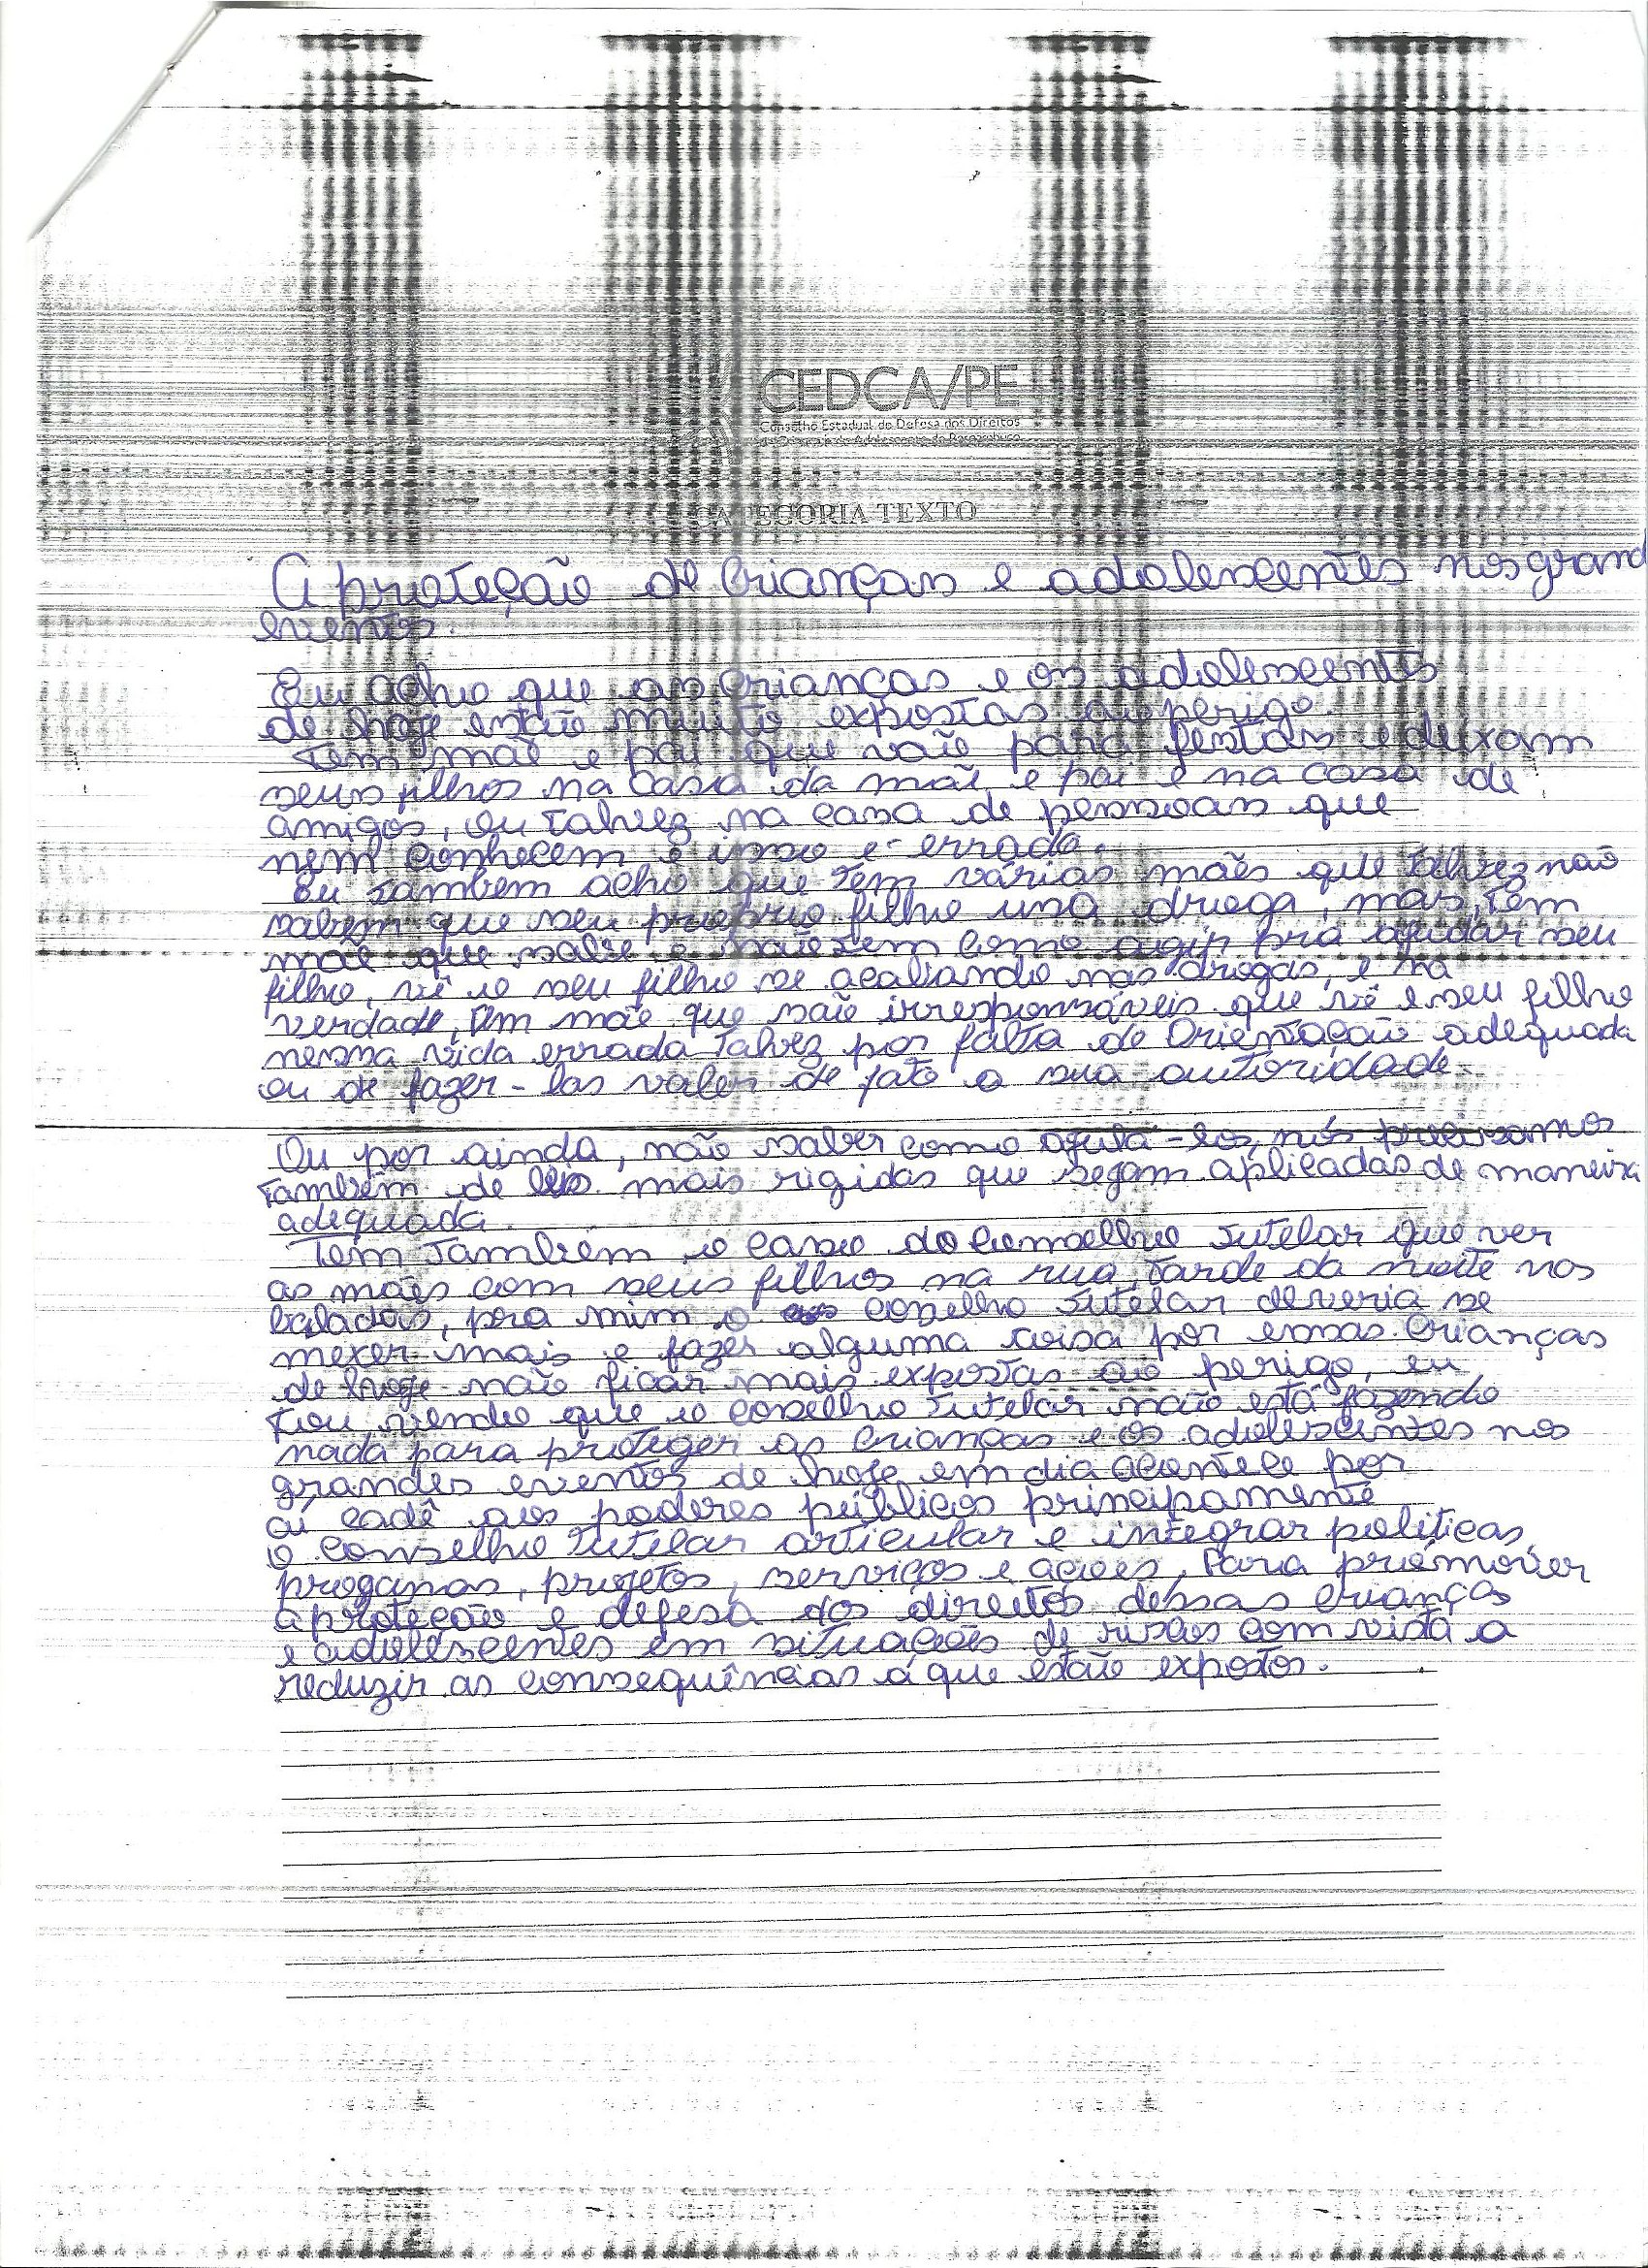 CEDCA/PE
Conselho Estadual de Defesa dos Direitos
da Criança e do Adolescente de Pernambuco
CATEGORIA TEXTO
A proteção de Crianças e adolescentes nos grand
eventos.
Eu acho que as crianças e os adolescentes
de hoje estão muito expostas ao perigo.
Tem mãe e pai que vão para festas e deixam
seus filhos na casa da mãe e pai e na casa de
amigos, ou talvez na casa de pessoas que
nem conhecem e isso é errado.
Eu também acho que tem várias mães que talvez não
sabem que seu proprio filho usa droga, mas, tem
mãe que sabe e não tem como agir pra ajudar seu
filho, vê o seu filho se acabando nas drogas, e na
verdade, tem mãe que são irresponsáveis que vê e seu filho
nessa vida errada talvez por falta de Orientação adequada
ou de fazer-los valer de fato a sua autoridade.
Ou por ainda, não saber como ajuta-los, nós precisamos
também de leis mais rigidas que segam aplicadas de maneira
adequada.
Tem também o caso do Comselho Tutelar que ver
as mães com seus filhos na rua, tarde da noite nos
baladas, pra mim o coselho Tutelar deveria se
mexer mais e fazer alguma coisa por essas Crianças
de hoje não ficar mais expostas ao perigo, eu
tou vendo que o coselho Tutelar não está fazendo
nada para proteger as crianças e os adolescentes nos
grandes eventos de hoje em dia acontece por
aí cadê aos poderes públicos principamente
o Conselho Tutelar articular e integrar politicas,
progamas, projetos, serviços e ações, Para promover
a proteção e defesa dos direitos dessas crianças
e adolescentes em situações de riscos com vista a
reduzir as consequências á que estão expostos.